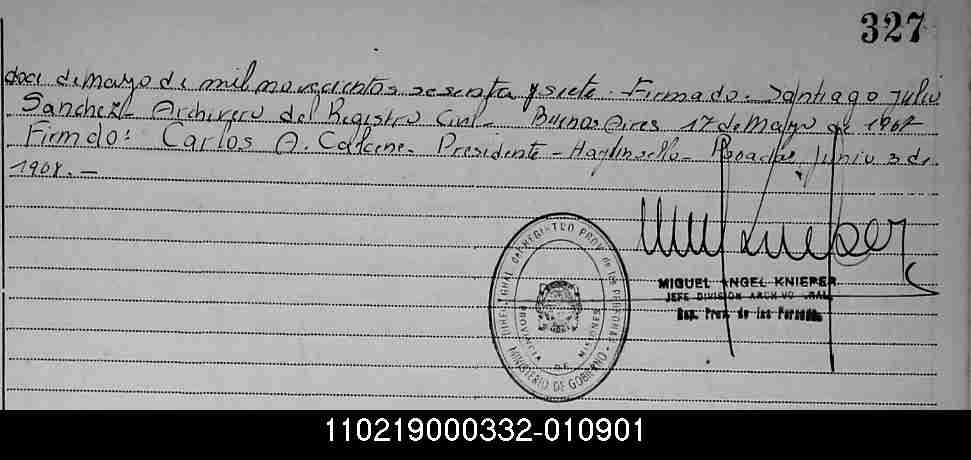 327
doce de mayo de mil novecientos sesenta y siete. Firmado. Santiago Julio
Sanchez - Archivero del Registro Civil - Buenos Aires 17 de Mayo de 1967
Firmdo: Carlos A. Presidente - Hay un sello - Posadas, Junio 3 de
190 .-
MIGUEL ANGEL KNIEPER
JEFE DIVISION ARCHIVO GRAL.
Reg. Prov. de las Personas
DIREC. GRAL. del REGISTRO PROV. de las PERSONAS
PROVINCIA DE MISIONES
MINISTERIO DE GOBIERNO
110219000332-010901